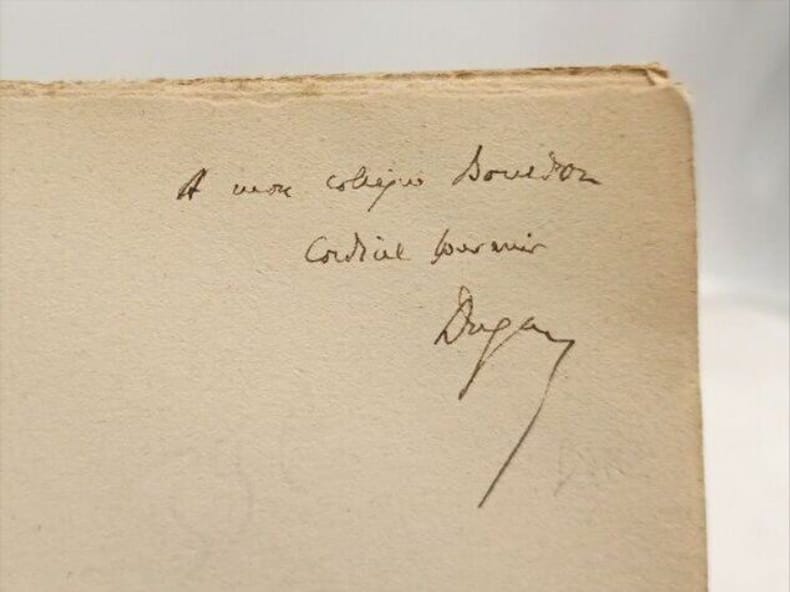 A mon collègue Bourdon
Cordial souvenir
Dugas